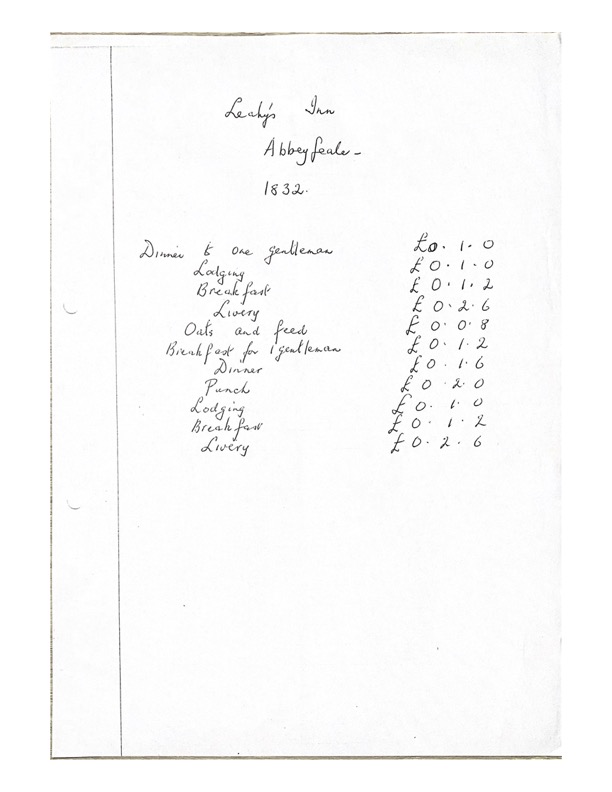 Leahy's Inn
Abbeyfeale -
1832.
Dinner to one gentleman £0.1.0
Lodging £0.1.0
Breakfast £0.1.2
Livery £0.2.6
Oats and feed £0.0.8
Breakfast for 1 gentleman £0.1.2
Dinner £0.1.6
Punch £0.2.0
Lodging £0.1.0
Breakfast £0.1.2
Livery £0.2.6